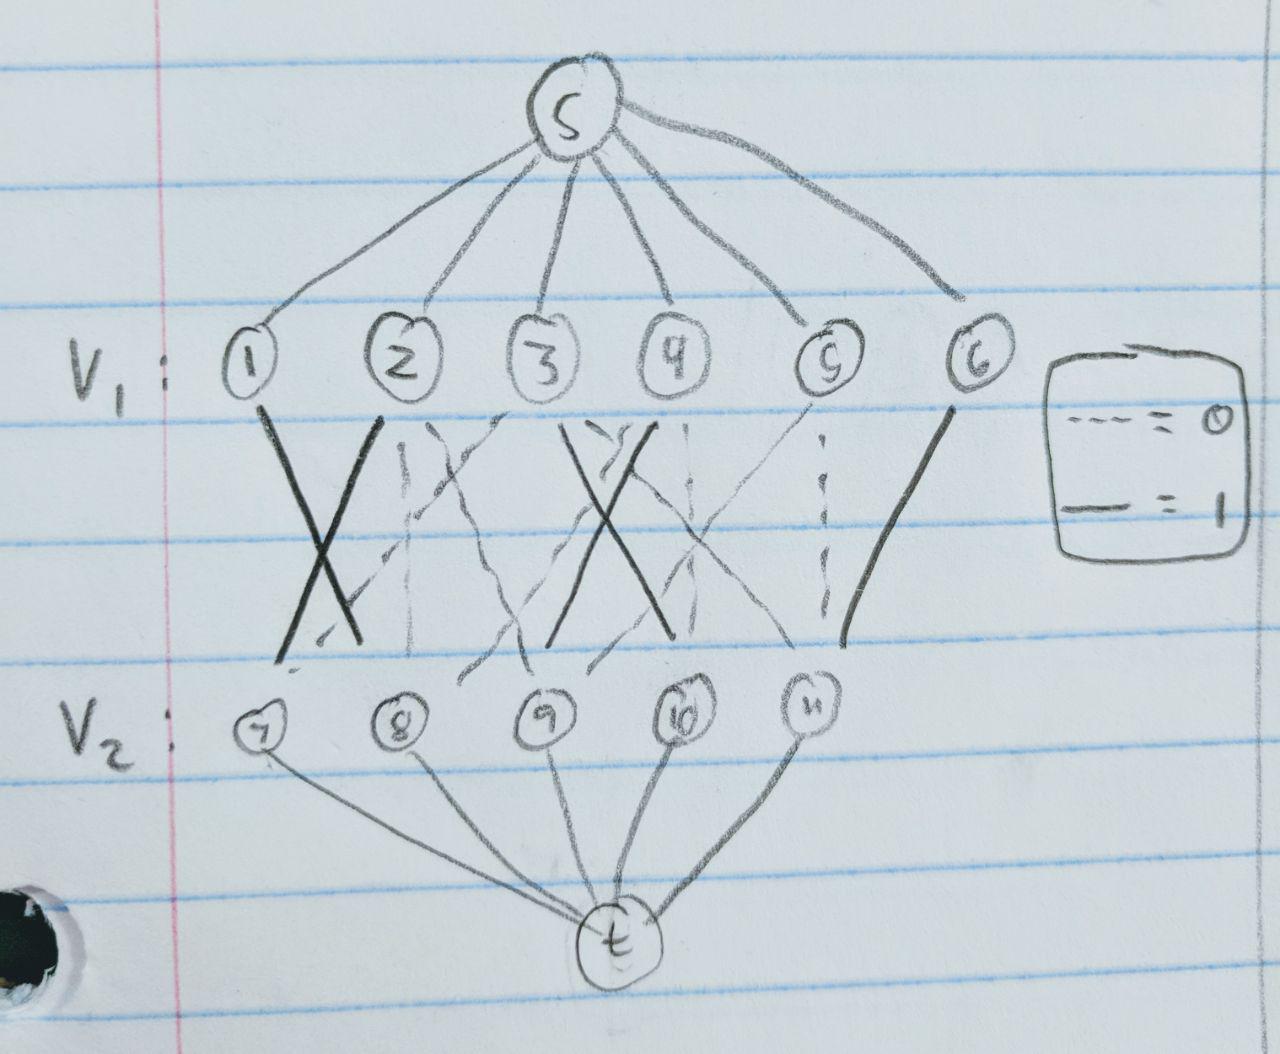 S
V1: 1 2 3 4 5 6
---- = 0
— = 1
V2: 7 8 9 10 11
t